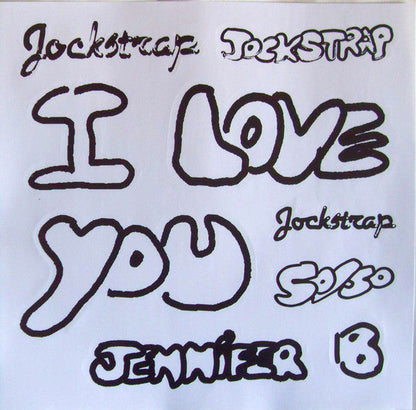 Jockstrap JOCKSTRAP
I LOVE
YOU
Jockstrap
50/50
JENNIFER B